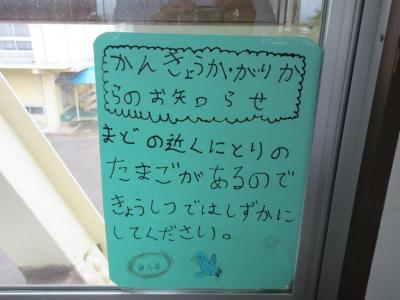 かんきょうかかがりか
らのお知らせ
まどの近くにとりの
たまごがあるので
きょうしつではしずかに
してください。